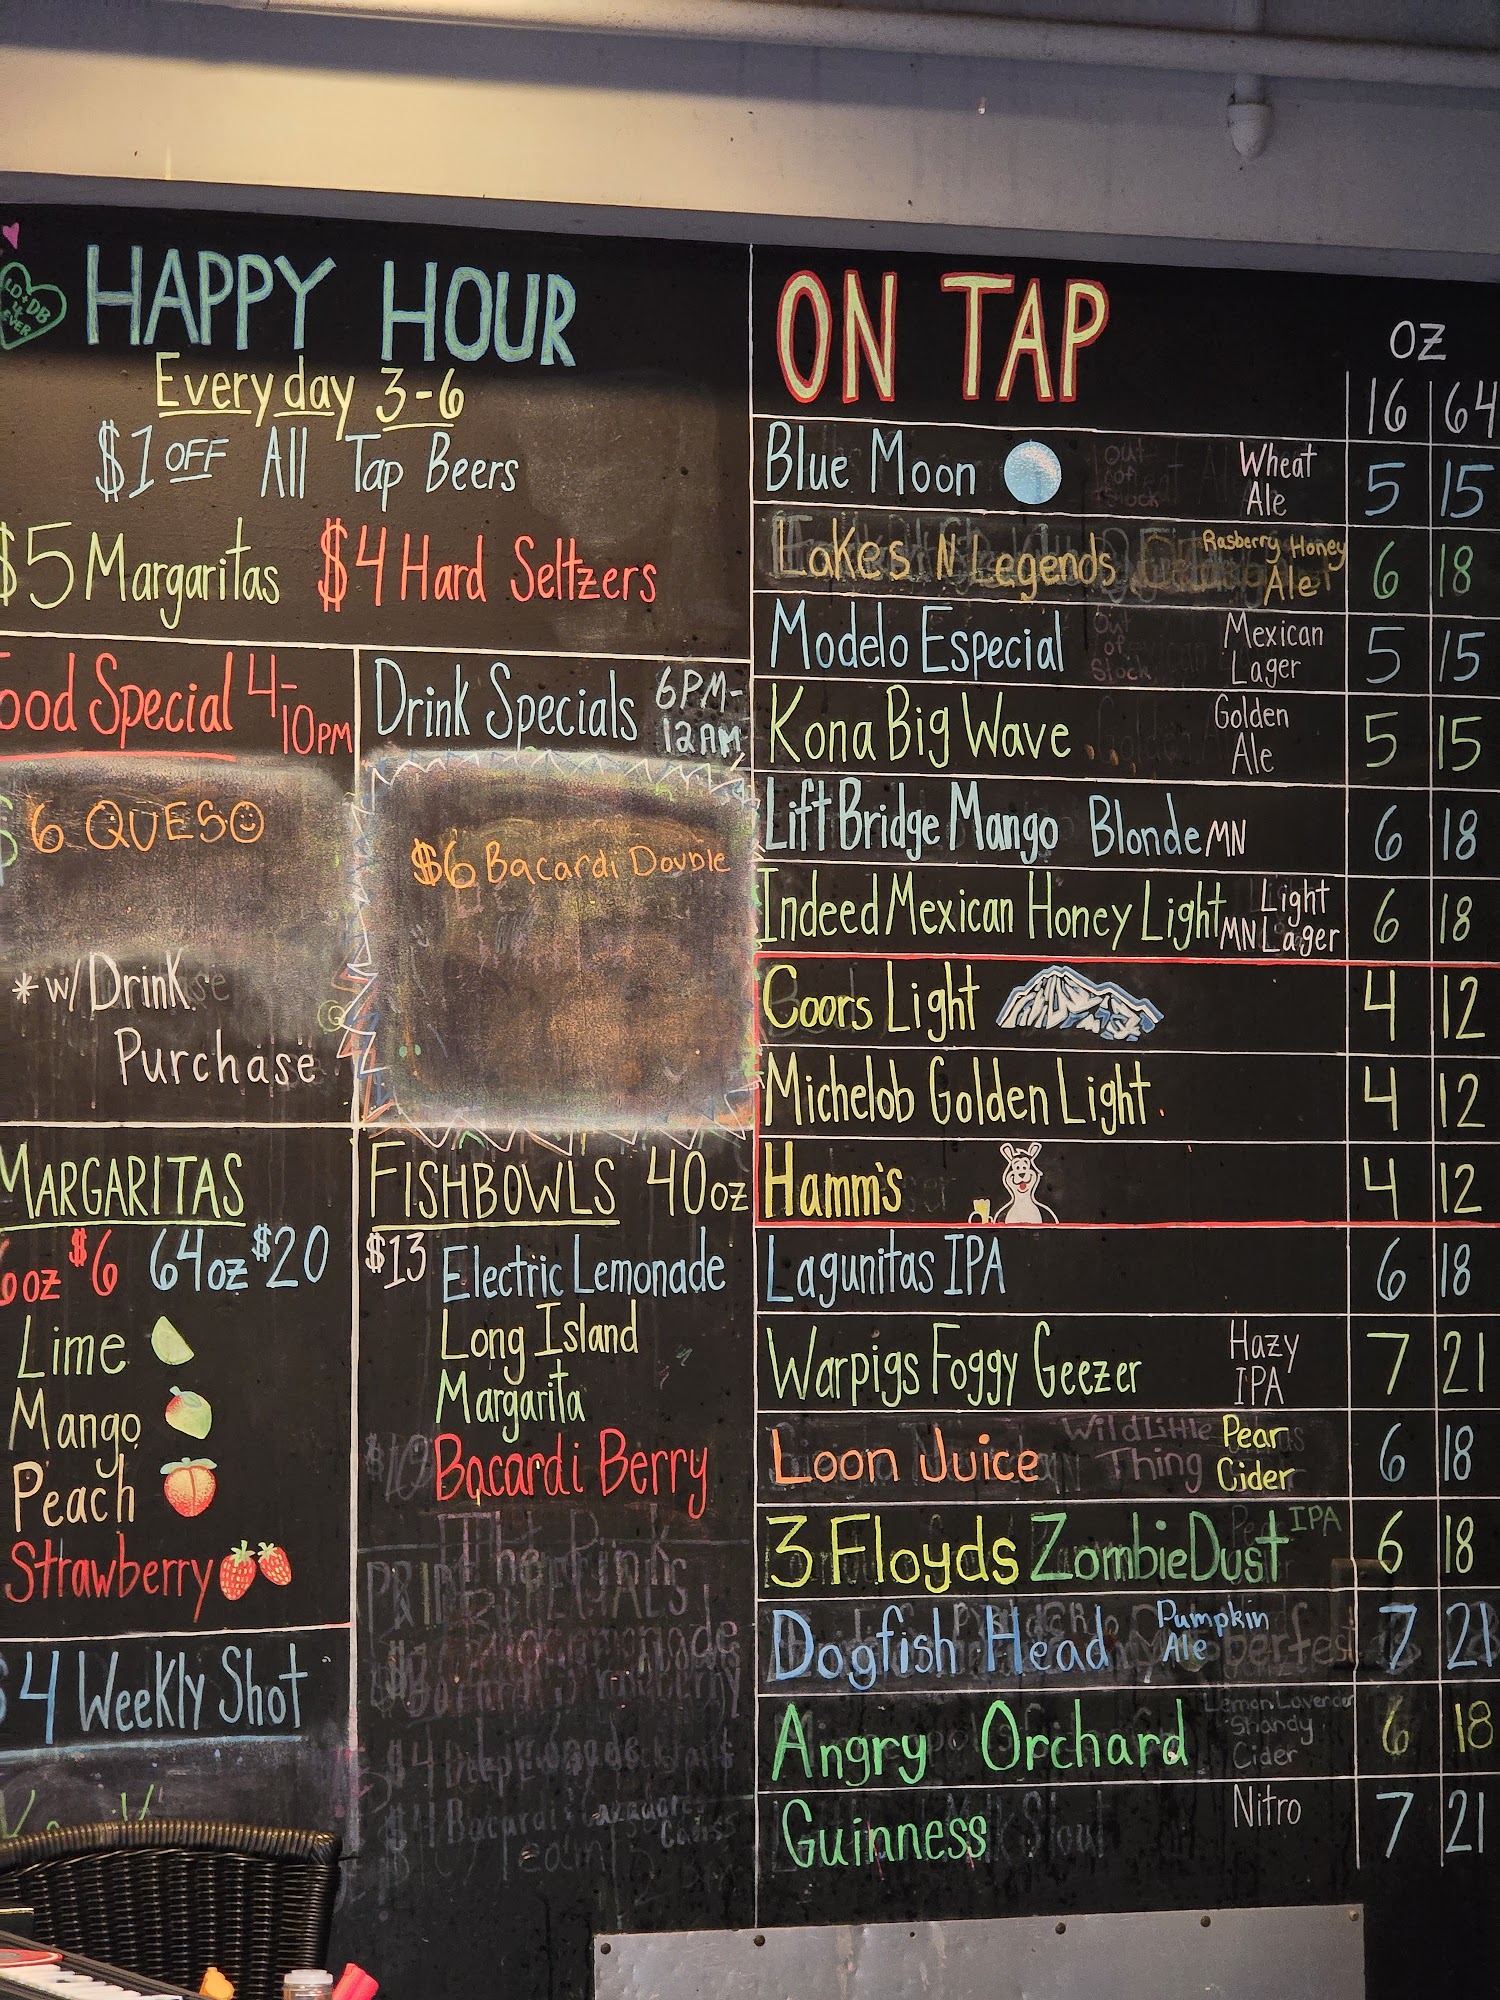 HAPPY HOUR
LD + DB
4
EVER
Everyday 3-6
$1 OFF All Tap Beers
$5 Margaritas $4 Hard Seltzers
ood Special 4-
10PM
$6 QUESO
*w/ Drink
Purchase
Drink Specials 6PM-
12AM
$6 Bacardi Double
MARGARITAS
6oz $6 64oz $20
Lime
Mango
Peach
Strawberry
$4 Weekly Shot
FISHBOWLS 40oz
$13 Electric Lemonade
Long Island
Margarita
Bacardi Berry
ON TAP
OZ
16 64
Blue Moon Wheat Ale 5 15
Lakes N Legends Rasberry Honey Ale 6 18
Modelo Especial Mexican Lager 5 15
Kona Big Wave Golden Ale 5 15
Lift Bridge Mango Blonde MN 6 18
Indeed Mexican Honey Light MN Light Lager 6 18
Coors Light 4 12
Michelob Golden Light 4 12
Hamm's 4 12
Lagunitas IPA 6 18
Warpigs Foggy Geezer Hazy IPA 7 21
Loon Juice Wild Little Thing Pear Cider 6 18
3 Floyds Zombie Dust IPA 6 18
Dogfish Head Pumpkin Ale 7 21
Angry Orchard Lemon Lavender Shandy Cider 6 18
Guinness Nitro 7 21